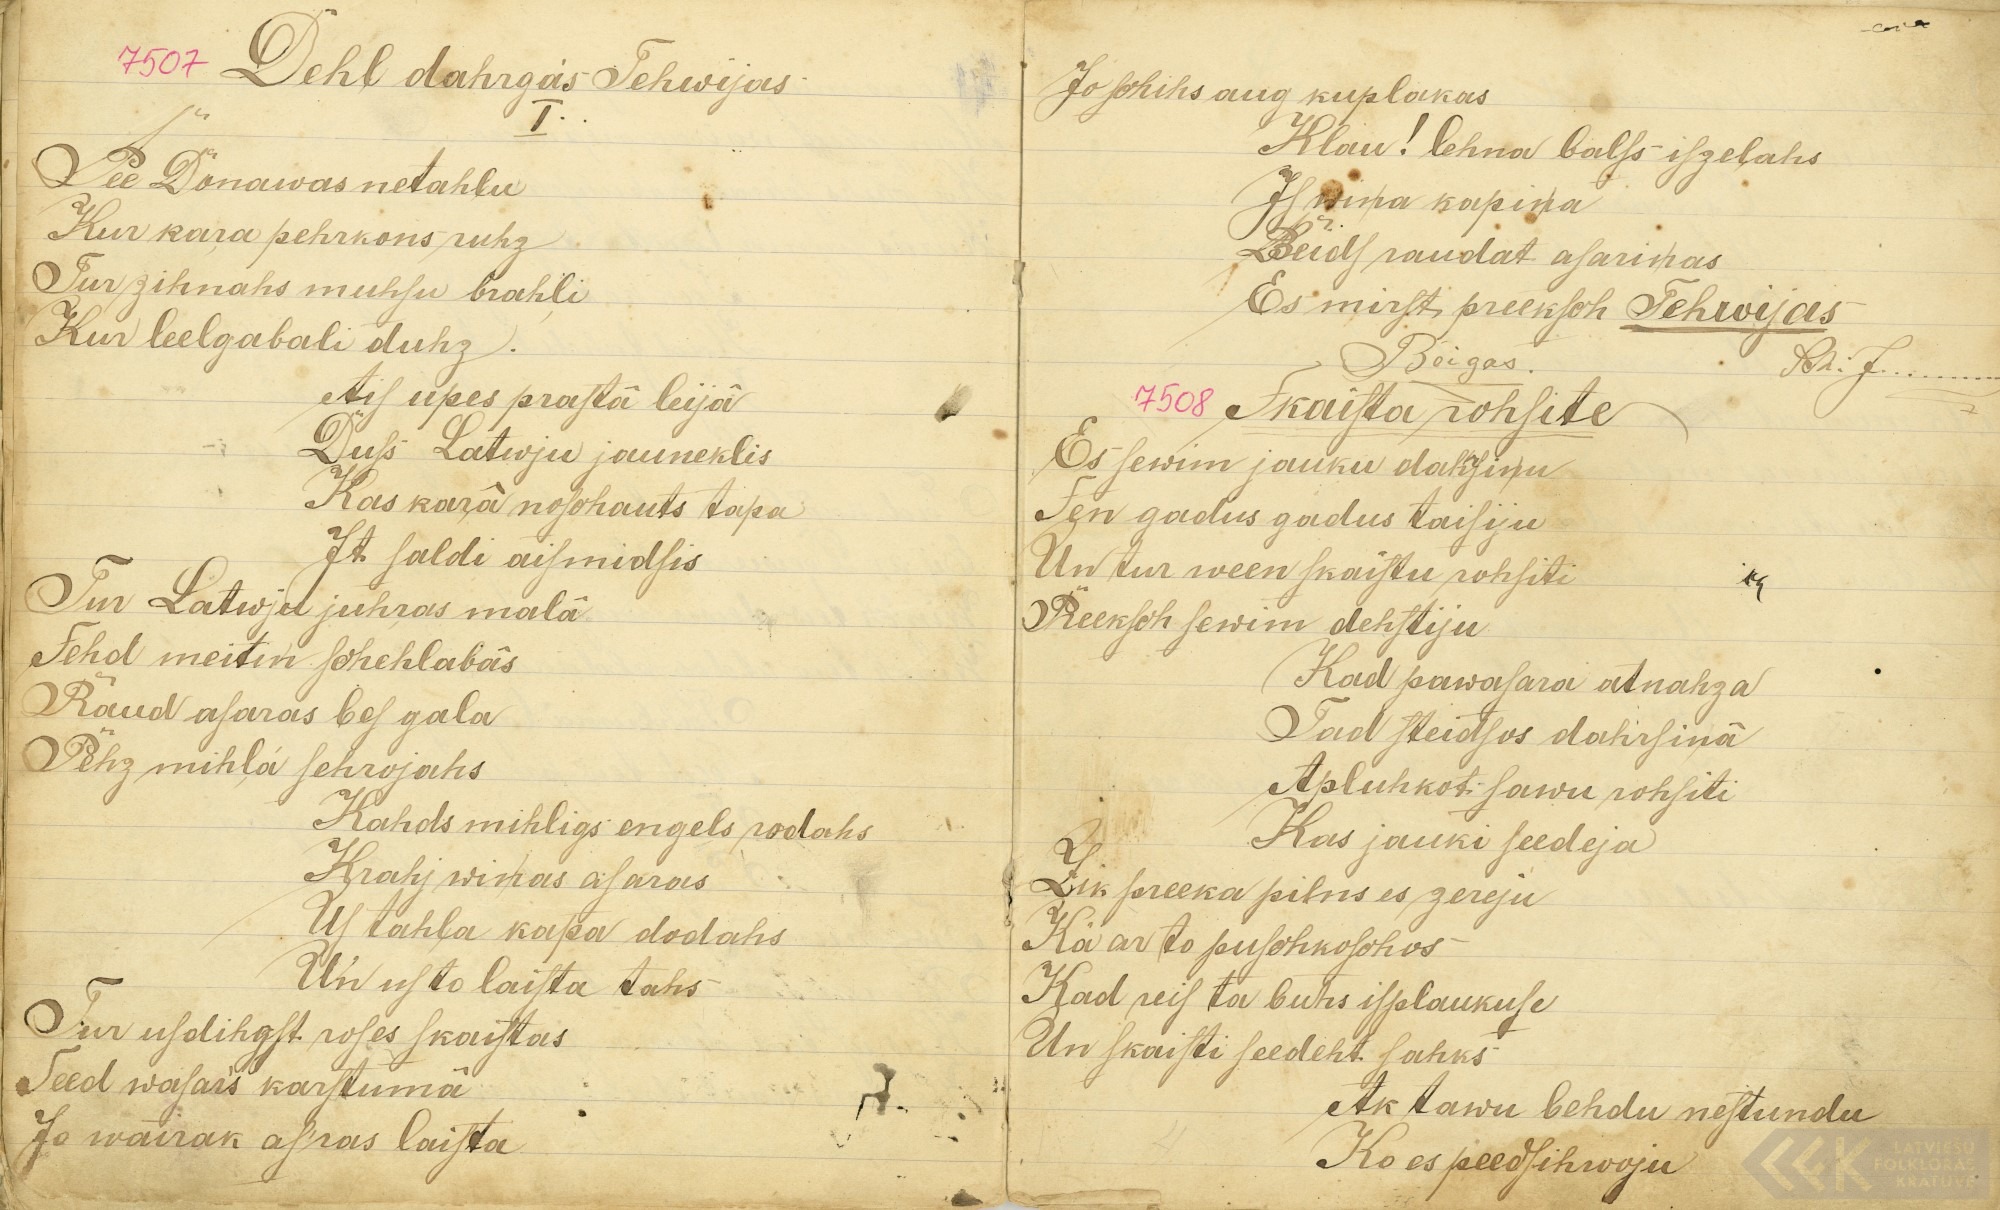 7507 Dehl dahrgás Tehwijas
I.
Pee Donawas netahlu
Kur kaŗa pehrkons ruhz
Tur zihnahs muhsu brahļi
Kur leelgabali duhz.
Ais upes prastâ leijâ
Duſs Latwju jauneklis
Kas kaŗâ noschauts tapa
It saldi aismidsis
Tur Latwju juhŗas malâ
Sehd meitin schehlabâs
Raud asaras bes gala
Pehz mihļá sehrojahs
Kahds mihligs engels rodahs
Krahj wiņas asaras
Us tahļa kapa dodahs
Un us to laista tahs
Tur usdihgst roses skaistas
Seed wasar's karstumâ
Jo wairak asras laista
Jo schihs aug kuplakas
Klau! lehna balss iszelahs
Is wiņa kapiņa
Beids raudat asariņas
Es mirstu preeksch Tehwijas
Beigas. Sch: J.........
7508 Skaista rohsite
Es sewim jauku dahrsiņu
Sen gadus gadus taisiju
Un tur ween skaistu rohsiti
Preeksch sewim dehstiju
Kad pawasara atnahza
Tad steidsos dahrsiņâ
Apluhkot sawu rohsiti
Kas jauki seedeja
Zik preeka pilns es zereju
Kâ ar to puschkoschos
Kad reis ta buhs isplaukuse
Un skaisti seedeht sahks
Ak tawu behdu nestundu
Ko es peedsihwoju
LATVIEŠU
FOLKLORAS
KRĀTUVE